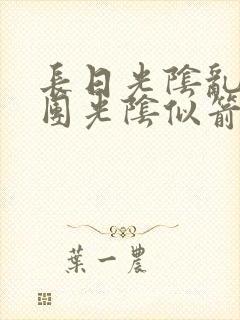 長日光陰亂
團光陰似箭
葉一農